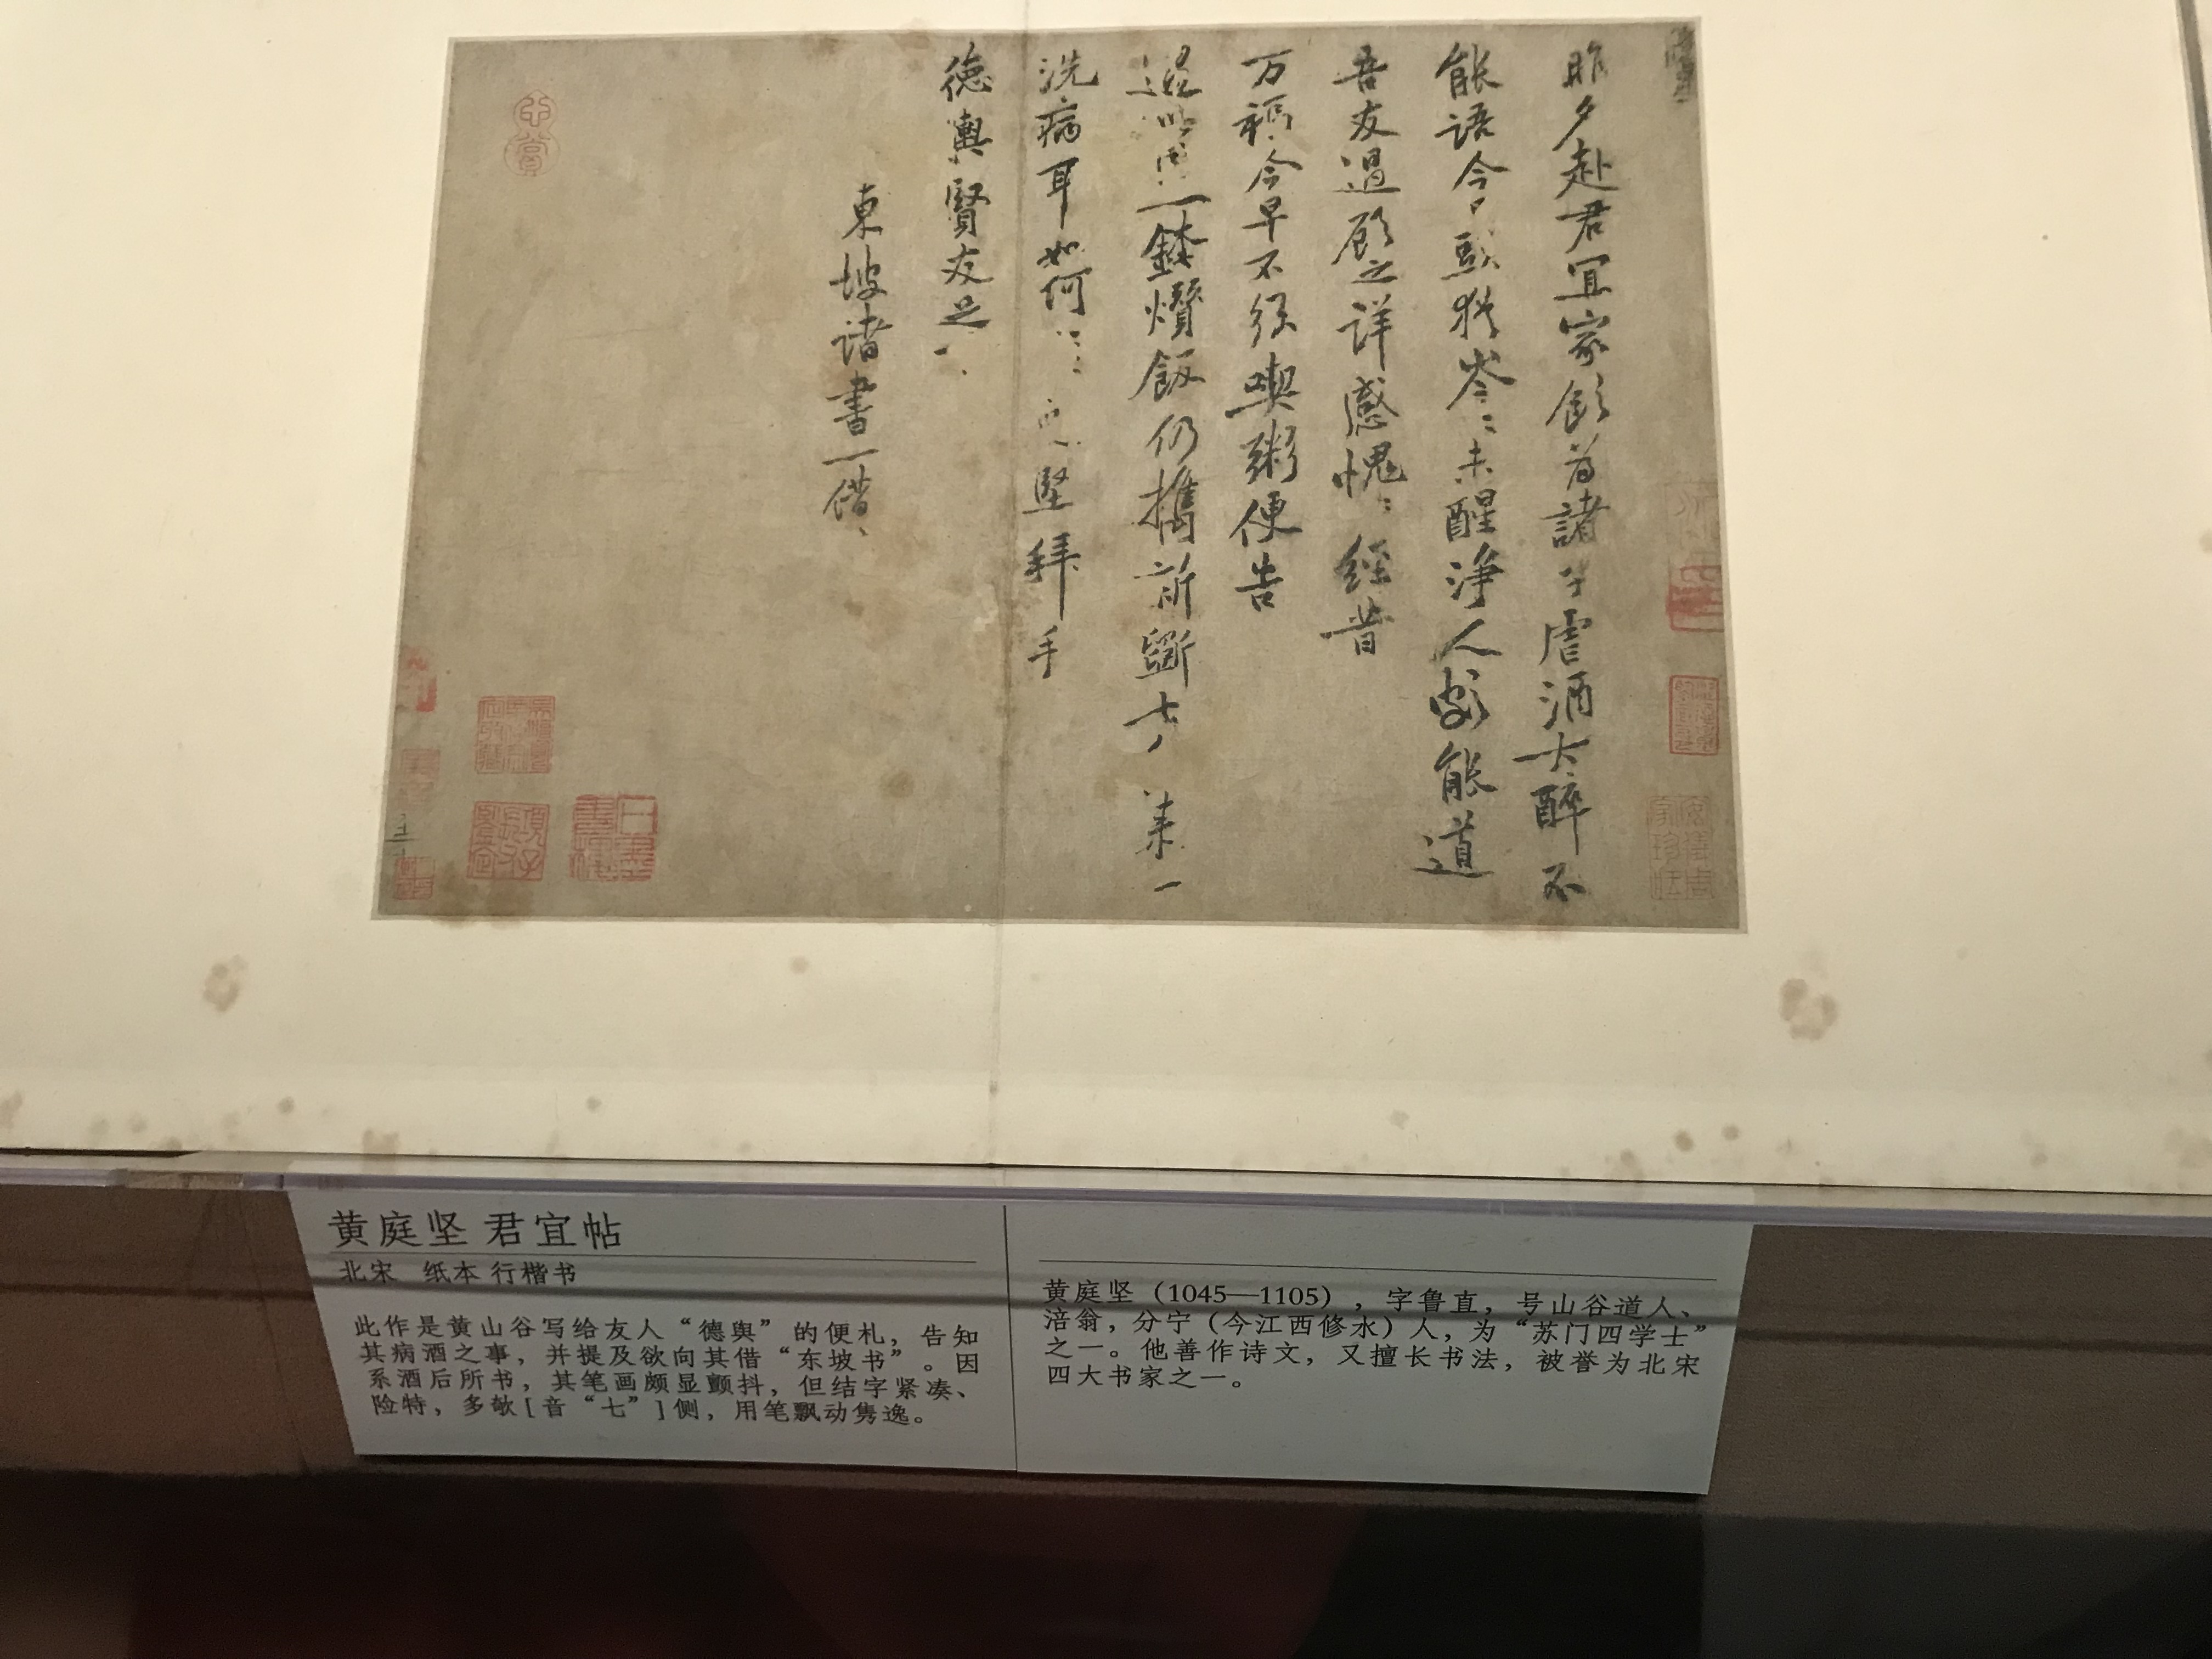 昨夕赴君宜家飲為諸子虐酒大醉不
能語今日頭猶岑〻未醒淨人劣能道
吾友過顧之詳感愧〻經昔
万福今早不經喫粥便告
一鉢爩飯仍攜新斵七 来一
洗病耳如何 堅拜手
德輿賢友足
東坡諸書一借
黄庭坚 君宜帖
北宋 纸本 行楷书
此作是黄山谷写给友人“德舆”的便札，告知
其病酒之事，并提及欲向其借“东坡书”。因
系酒后所书，其笔画颇显颤抖，但结字紧凑、
险特，多欹[音“七”]侧，用笔飘动隽逸。
黄庭坚（1045—1105），字鲁直，号山谷道人、
涪翁，分宁（今江西修水）人，为“苏门四学士”
之一。他善作诗文，又擅长书法，被誉为北宋
四大书家之一。